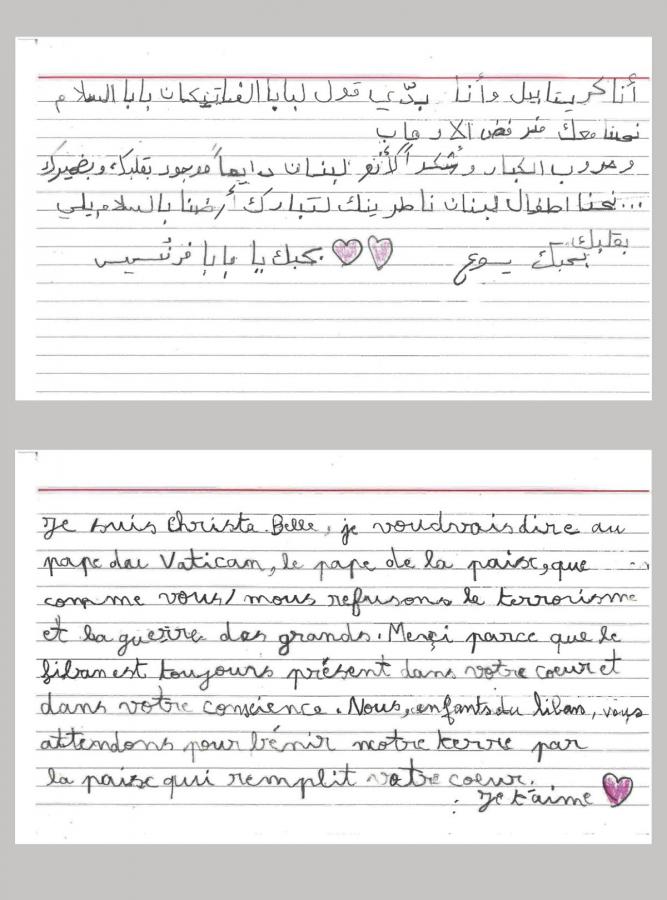 أنا كريستابيل وأنا بدّي قول لبابا الفاتيكان بابا السلام
نحنا معك منرفض الارهاب
وحروب الكبار وشكراً لأنو لبنان دايماً موجود بقلبك وبضميرك
...نحنا اطفال لبنان ناطرينك لتبارك أرضنا بالسلام يلي
بقلبك
بحبك يسوع ♥♥ بحبك يا بابا فرنسيس
Je suis Christa Belle, je voudrais dire au
pape du Vatican, le pape de la paix, que
comme vous/ nous refusons le terrorisme
et la guerre des grands. Merçi parce que le
liban est toujours présent dans votre coeur et
dans votre conscience. Nous, enfants du liban, vous
attendons pour bénir notre terre par
la paix qui remplit votre coeur.
Je t'aime ♥